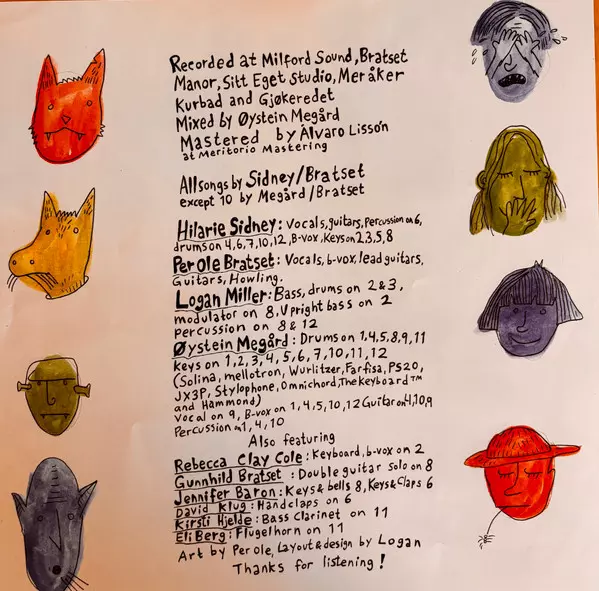 Recorded at Milford Sound, Bratset
Manor, Sitt Eget Studio, Meråker
Kurbad and Gjøkeredet
Mixed by Øystein Megård
Mastered by Álvaro Lissón
at Meritorio Mastering
All songs by Sidney/Bratset
except 10 by Megård/Bratset
Hilarie Sidney: Vocals, guitars, Percussion on 6,
drums on 4,6,7,10,12, B-vox, Keys on 2,3,5,8
Per Ole Bratset: Vocals, b-vox, lead guitars,
Guitars, Howling.
Logan Miller: Bass, drums on 2 & 3,
modulator on 8, Upright bass on 2
percussion on 8 & 12
Øystein Megård: Drums on 1,4,5,8,9,11
Keys on 1,2,3,4,5,6,7,10,11,12
(Solina, mellotron, Wurlitzer, Farfisa, PS20,
JX3P, Stylophone, Omnichord, The Keyboard™
and Hammond)
Vocal on 9, B-vox on 1,4,5,10,12 Guitar on 4,10,9
Percussion on 1, 4, 10
Also featuring
Rebecca Clay Cole: Keyboard, b-vox on 2
Gunnhild Bratset: Double guitar solo on 8
Jennifer Baron: Keys & bells 8, Keys & Claps 6
David Klug: Handclaps on 6
Kirsti Hjelde: Bass Clarinet on 11
Eli Berg: Flugelhorn on 11
Art by Per Ole, Layout & design by Logan
Thanks for listening!